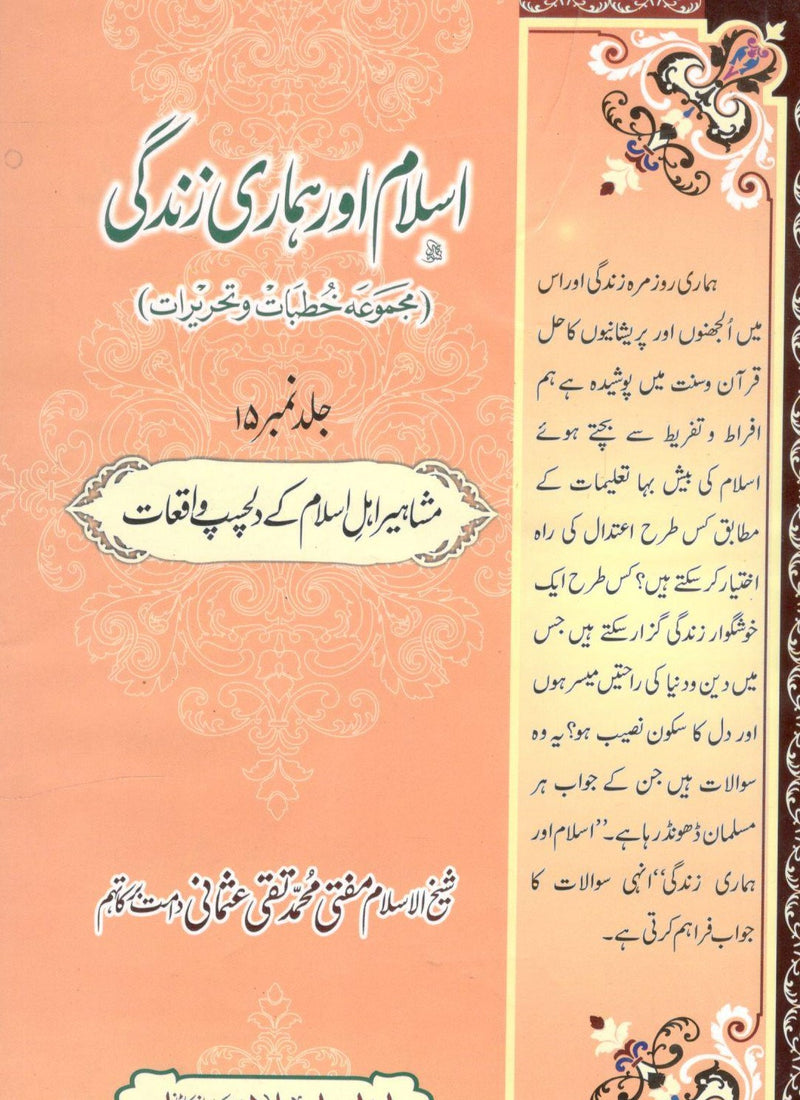 اسلام اور ہماری زندگی
(مجموعہ خُطبات و تحریرات)
جلد نمبر ۱۵
مشاہیر اہلِ اسلام کے دلچسپ واقعات
شیخ الاسلام مفتی محمّد تقی عثمانی دامت برکاتہم
ہماری روزمرہ زندگی اور اس
میں اُلجھنوں اور پریشانیوں کا حل
قرآن و سنت میں پوشیدہ ہے ہم
افراط و تفریط سے بچتے ہوئے
اسلام کی بیش بہا تعلیمات کے
مطابق کس طرح اعتدال کی راہ
اختیار کر سکتے ہیں؟ کس طرح ایک
خوشگوار زندگی گزار سکتے ہیں جس
میں دین و دنیا کی راحتیں میسر ہوں
اور دل کا سکون نصیب ہو؟ یہ وہ
سوالات ہیں جن کے جواب ہر
مسلمان ڈھونڈ رہا ہے۔ ’’اسلام اور
ہماری زندگی‘‘ انہی سوالات کا
جواب فراہم کرتی ہے۔